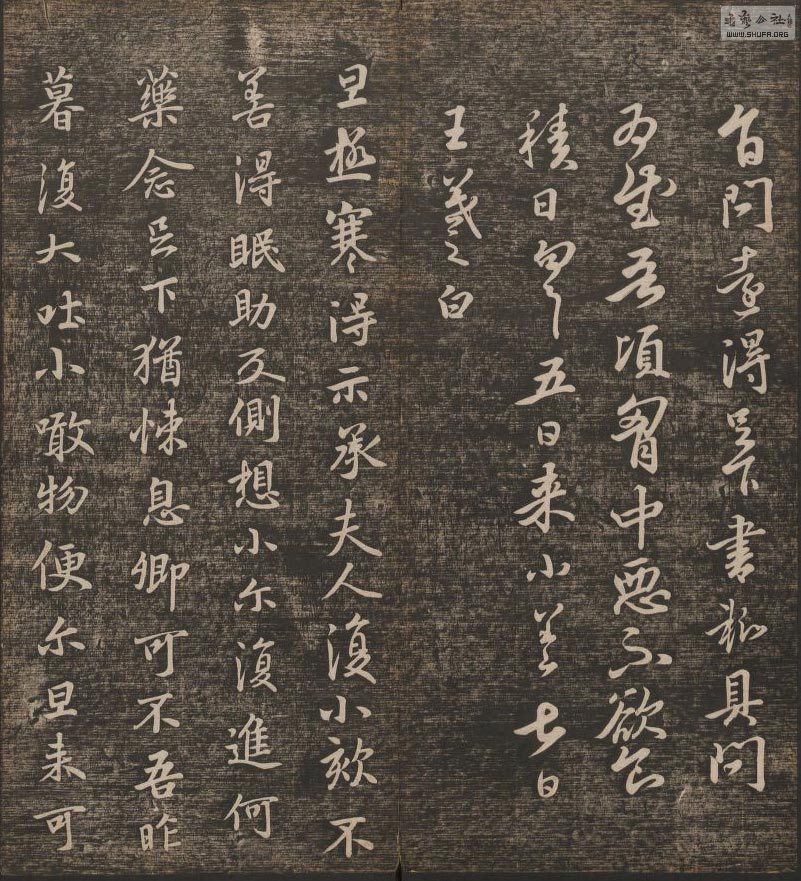 問得足下書粗具問
為慰吾頃胷中惡不欲食
積日匆匆五日来小差七日
王羲之白
旦極寒得示承夫人復小欬不
善得眠助反側想小尔復進何
藥念足下猶悚息卿可不吾昨
暮復大吐小噉物便尔旦来可
WWW.SHUFA.ORG